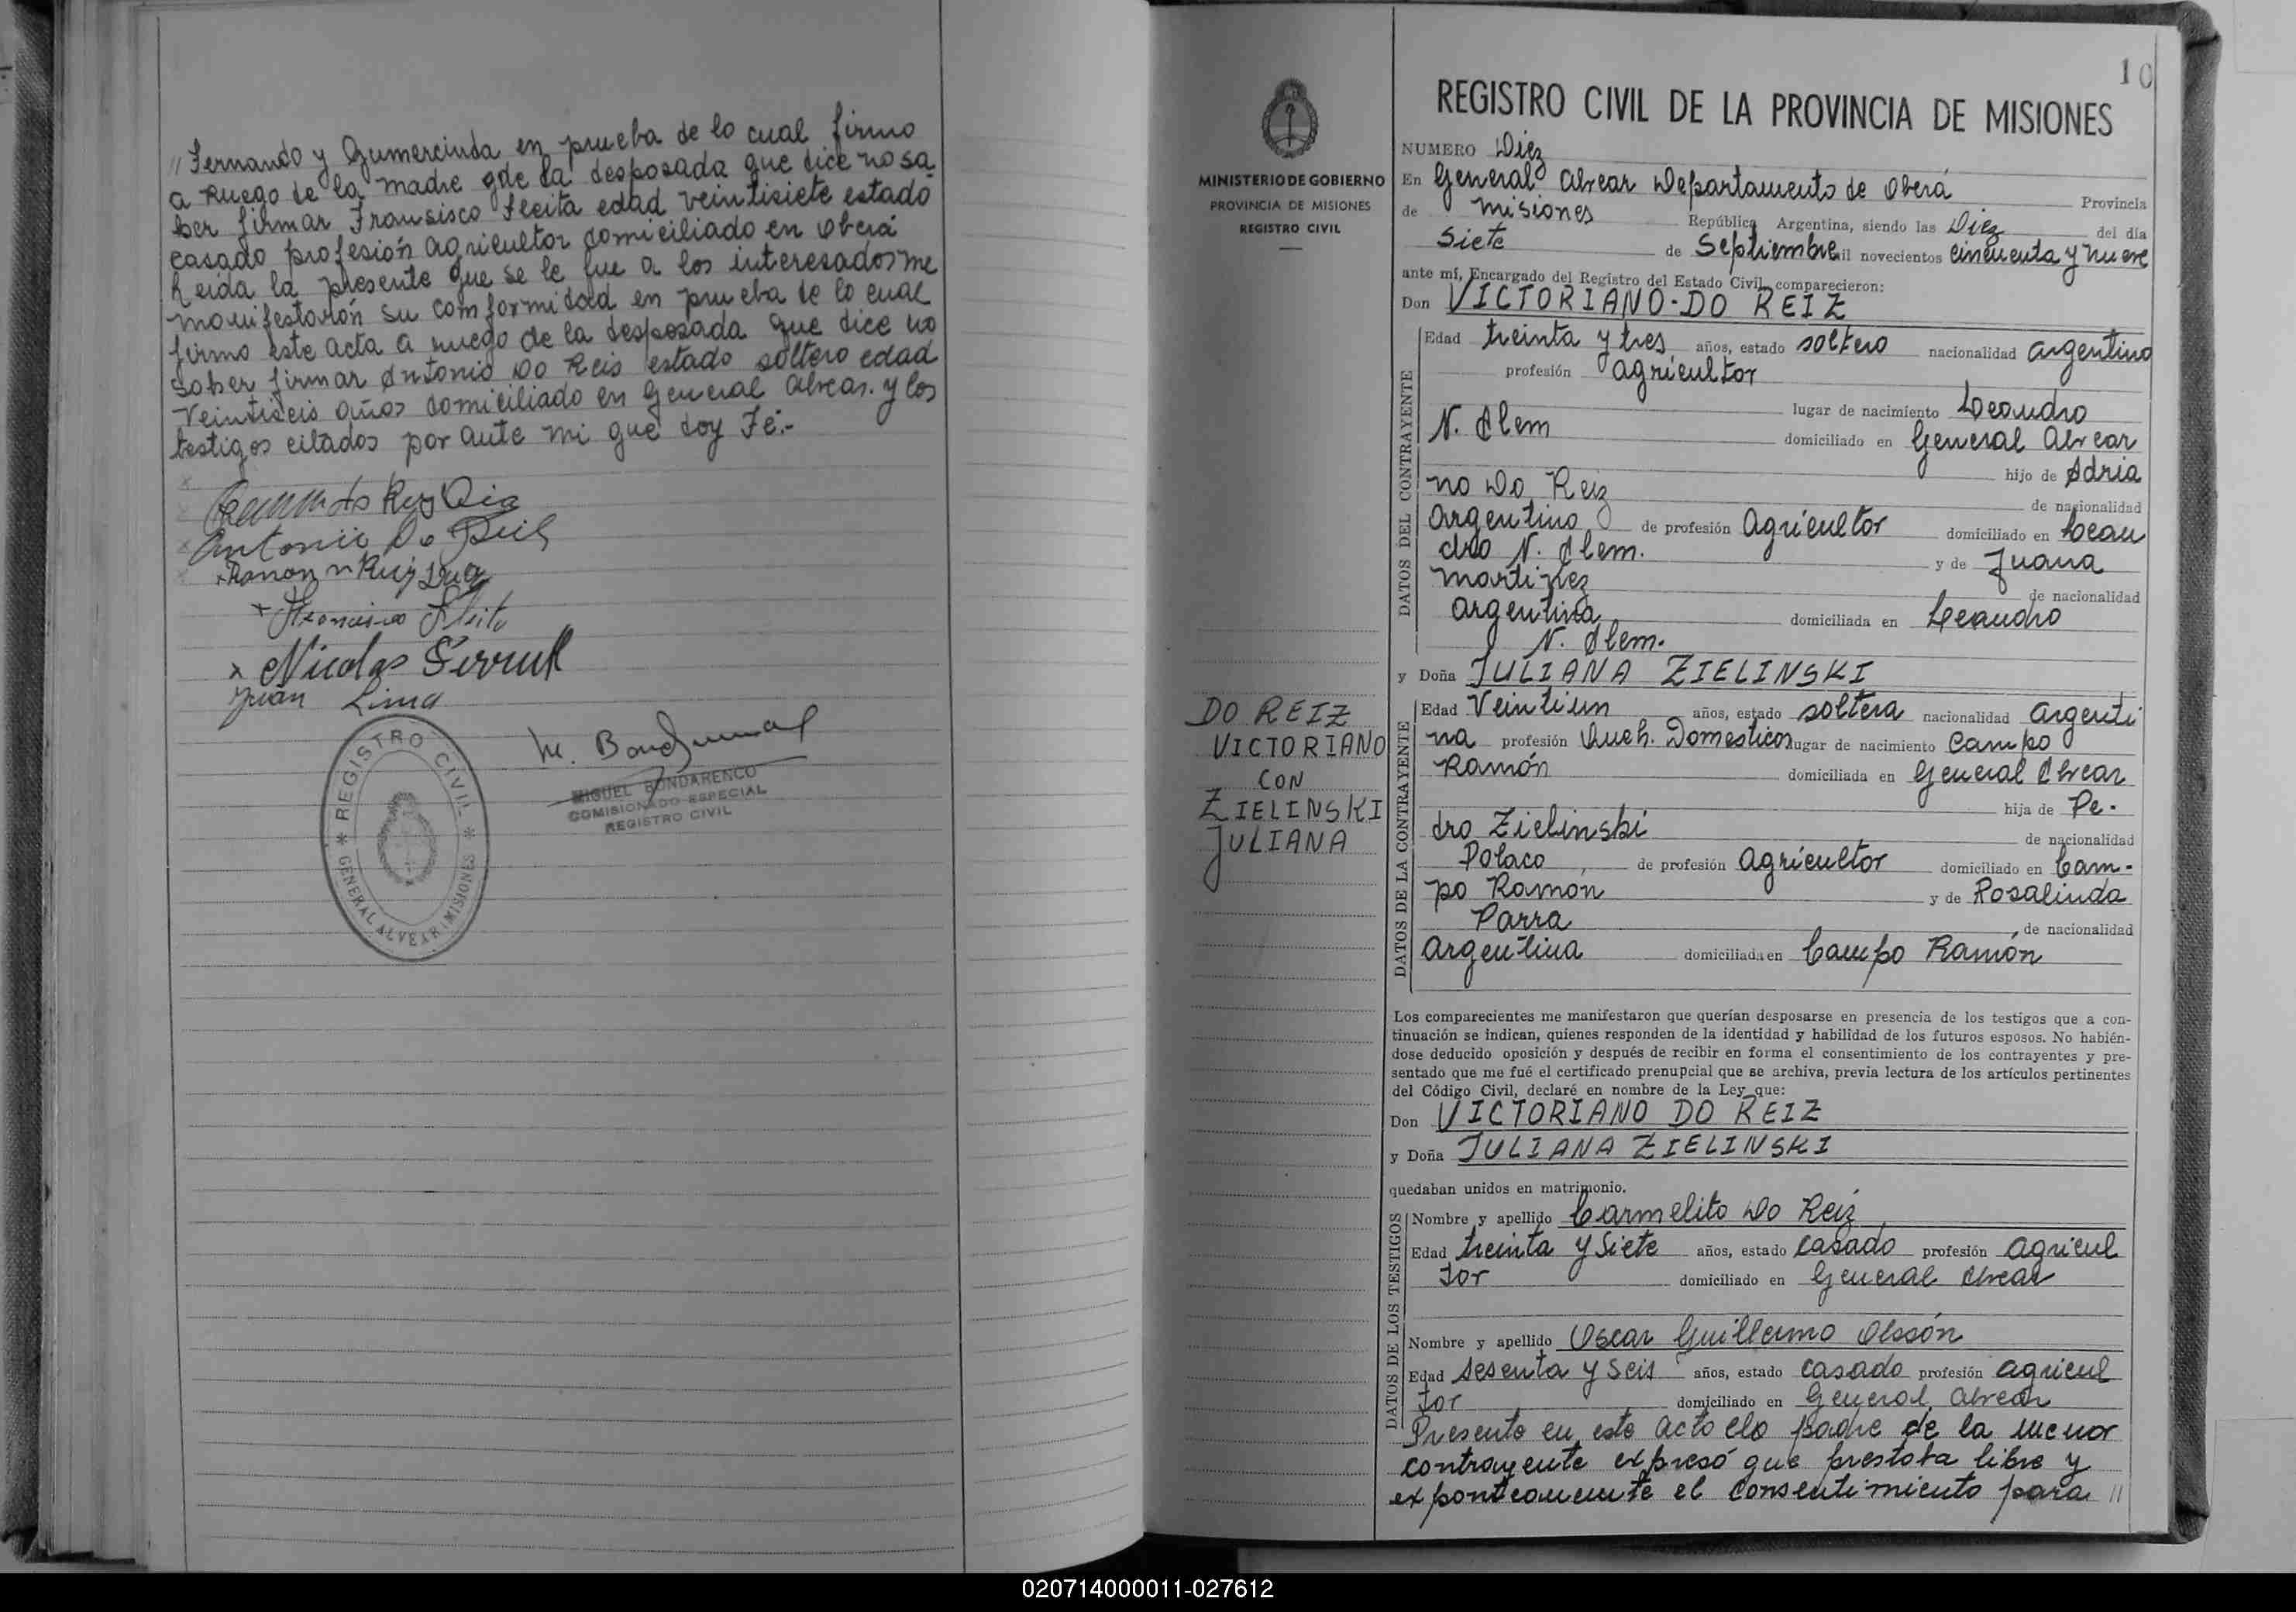 // Fernando y Gumercinda en prueba de lo cual firmo
a Ruego de la madre qde la desposada que dice no sa
ber firmar Fransisco Fleita edad veintisiete estado
casado profesión agricultor domiciliado en Oberá
Leida la presente que se le fue a los interesados me
manifestarón su comformidad en prueba de lo cual
firmo este acta a ruego de la desposada que dice no
saber firmar Antonio Do Reis estado soltero edad
Veintiseis años domiciliado en General Alvear. y los
testigos citados por ante mi que doy Fé.-
Antonio Do
x Ramon
x Fleita
x Nicolas
Juan Lima
M. Bondarenco
MIGUEL BONDARENCO
COMISIONADO ESPECIAL
REGISTRO CIVIL
* REGISTRO CIVIL *
GENERAL ALVEAR MISIONES
10
MINISTERIO DE GOBIERNO
PROVINCIA DE MISIONES
REGISTRO CIVIL
DO REIZ
VICTORIANO
CON
ZIELINSKI
JULIANA
REGISTRO CIVIL DE LA PROVINCIA DE MISIONES
NUMERO Diez
En General Alvear Departamento de Oberá Provincia
de Misiones República Argentina, siendo las Diez del día
Siete de Septiembre il novecientos cincuenta y nueve
ante mí, Encargado del Registro del Estado Civil, comparecieron:
Don VICTORIANO-DO REIZ
DATOS DEL CONTRAYENTE
Edad treinta y tres años, estado soltero nacionalidad argentino
profesión agricultor
lugar de nacimiento Leandro
N. Alem domiciliado en General Alvear
hijo de Adria
no Do Reiz de nacionalidad
Argentino de profesión Agricultor domiciliado en Lean
dro N. Alem. y de Juana
Martinez de nacionalidad
argentina domiciliada en Leandro
N. Alem.
y Doña JULIANA ZIELINSKI
DATOS DE LA CONTRAYENTE
Edad Veintiun años, estado soltera nacionalidad argenti
na profesión Queh. Domesticos lugar de nacimiento Campo
Ramón domiciliada en General Alvear
hija de Pe-
dro Zielinski de nacionalidad
Polaco de profesión Agricultor domiciliado en Cam-
po Ramón y de Rosalinda
Parra de nacionalidad
argentina domiciliada en Campo Ramón
Los comparecientes me manifestaron que querían desposarse en presencia de los testigos que a con-
tinuación se indican, quienes responden de la identidad y habilidad de los futuros esposos. No habién-
dose deducido oposición y después de recibir en forma el consentimiento de los contrayentes y pre-
sentado que me fué el certificado prenupcial que se archiva, previa lectura de los artículos pertinentes
del Código Civil, declaré en nombre de la Ley que:
Don VICTORIANO DO REIZ
y Doña JULIANA ZIELINSKI
quedaban unidos en matrimonio.
DATOS DE LOS TESTIGOS
Nombre y apellido Carmelito Do Reiz
Edad treinta y siete años, estado casado profesión agricul
tor domiciliado en General Alvear
Nombre y apellido Oscar Guillermo Olssón
Edad sesenta y seis años, estado casado profesión agricul
tor domiciliado en General Alvear
Presente en este acto elo padre de la menor
contrayente expresó que prestaba libre y
exponteamente el consentimiento para //
020714000011-027612